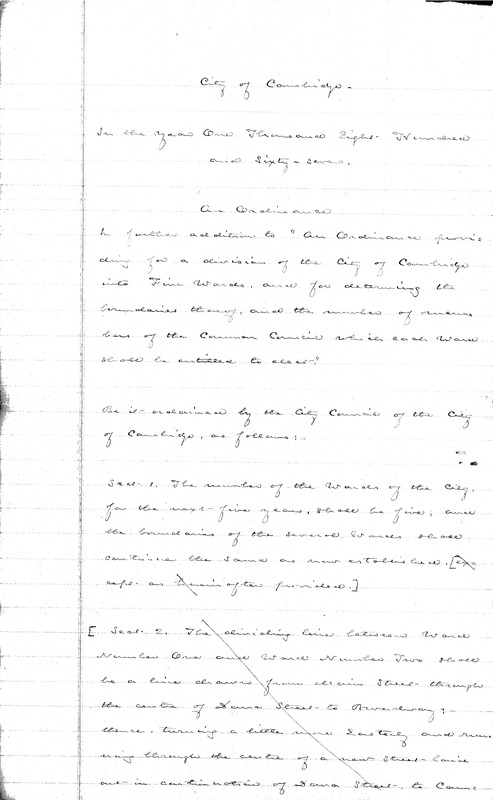 City of Cambridge.
In the year One Thousand Eight Hundred
and Sixty-seven.
An Ordinance
In further addition to "An Ordinance provi-
ding for a division of the City of Cambridge
into Five Wards, and for determing the
boundaries thereof, and the number of mem
bers of the Common Council which each Ward
shall be entitled to elect."
Be it ordained by the City Council of the City
of Cambridge, as follows:-
Sect. 1. The number of the Wards of the City,
for the next five years, shall be five; and
the boundaries of the several Wards shall
continue the same as now established. [ex-
cept as hereinafter provided.]
[ Sect. 2. The dividing line between Ward
Number One and Ward Number Two shall
be a line drawn from Main Street through
the centre of Dana Street to Broadway;
thence, turning a little more Easterly and run
ning through the centre of a new Street laid
out in continuation of Dana Street, to Cam